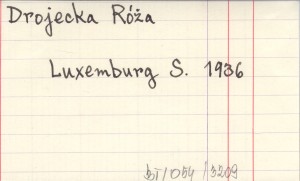 Drojecka Róża
Luxemburg S. 1936
bI/054/3209